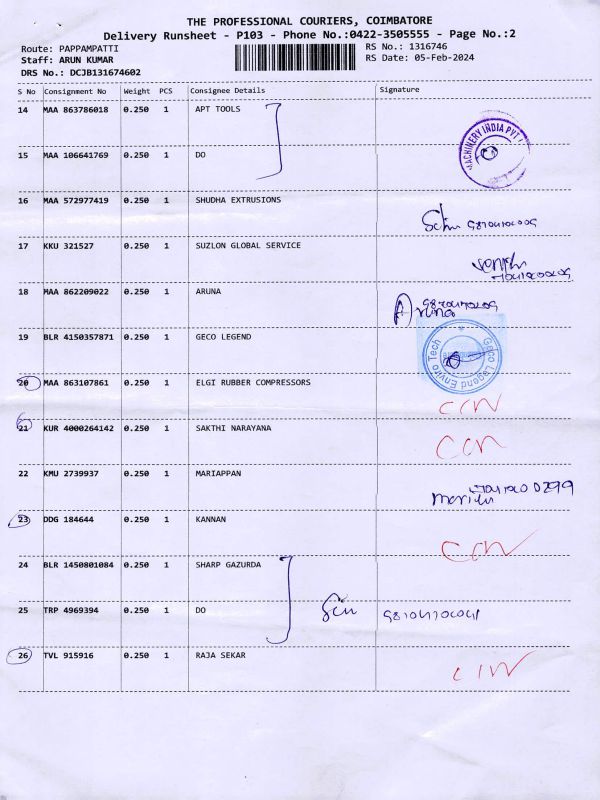 THE PROFESSIONAL COURIERS, COIMBATORE
Delivery Runsheet - P103 - Phone No.:0422-3505555 - Page No.:2
Route: PAPPAMPATTI RS No.: 1316746
Staff: ARUN KUMAR RS Date: 05-Feb-2024
DRS No.: DCJB131674602
S No Consignment No Weight PCS Consignee Details Signature
14 MAA 863786018 0.250 1 APT TOOLS
MACHINERY INDIA PVT
15 MAA 106641769 0.250 1 DO
16 MAA 572977419 0.250 1 SHUDHA EXTRUSIONS
17 KKU 321527 0.250 1 SUZLON GLOBAL SERVICE
18 MAA 862209022 0.250 1 ARUNA
Aruna
19 BLR 4150357871 0.250 1 GECO LEGEND
Geco Legend Enviro Tech
20 MAA 863107861 0.250 1 ELGI RUBBER COMPRESSORS
21 KUR 4000264142 0.250 1 SAKTHI NARAYANA
22 KMU 2739937 0.250 1 MARIAPPAN
23 DDG 184644 0.250 1 KANNAN
24 BLR 1450801084 0.250 1 SHARP GAZURDA
25 TRP 4969394 0.250 1 DO
26 TVL 915916 0.250 1 RAJA SEKAR